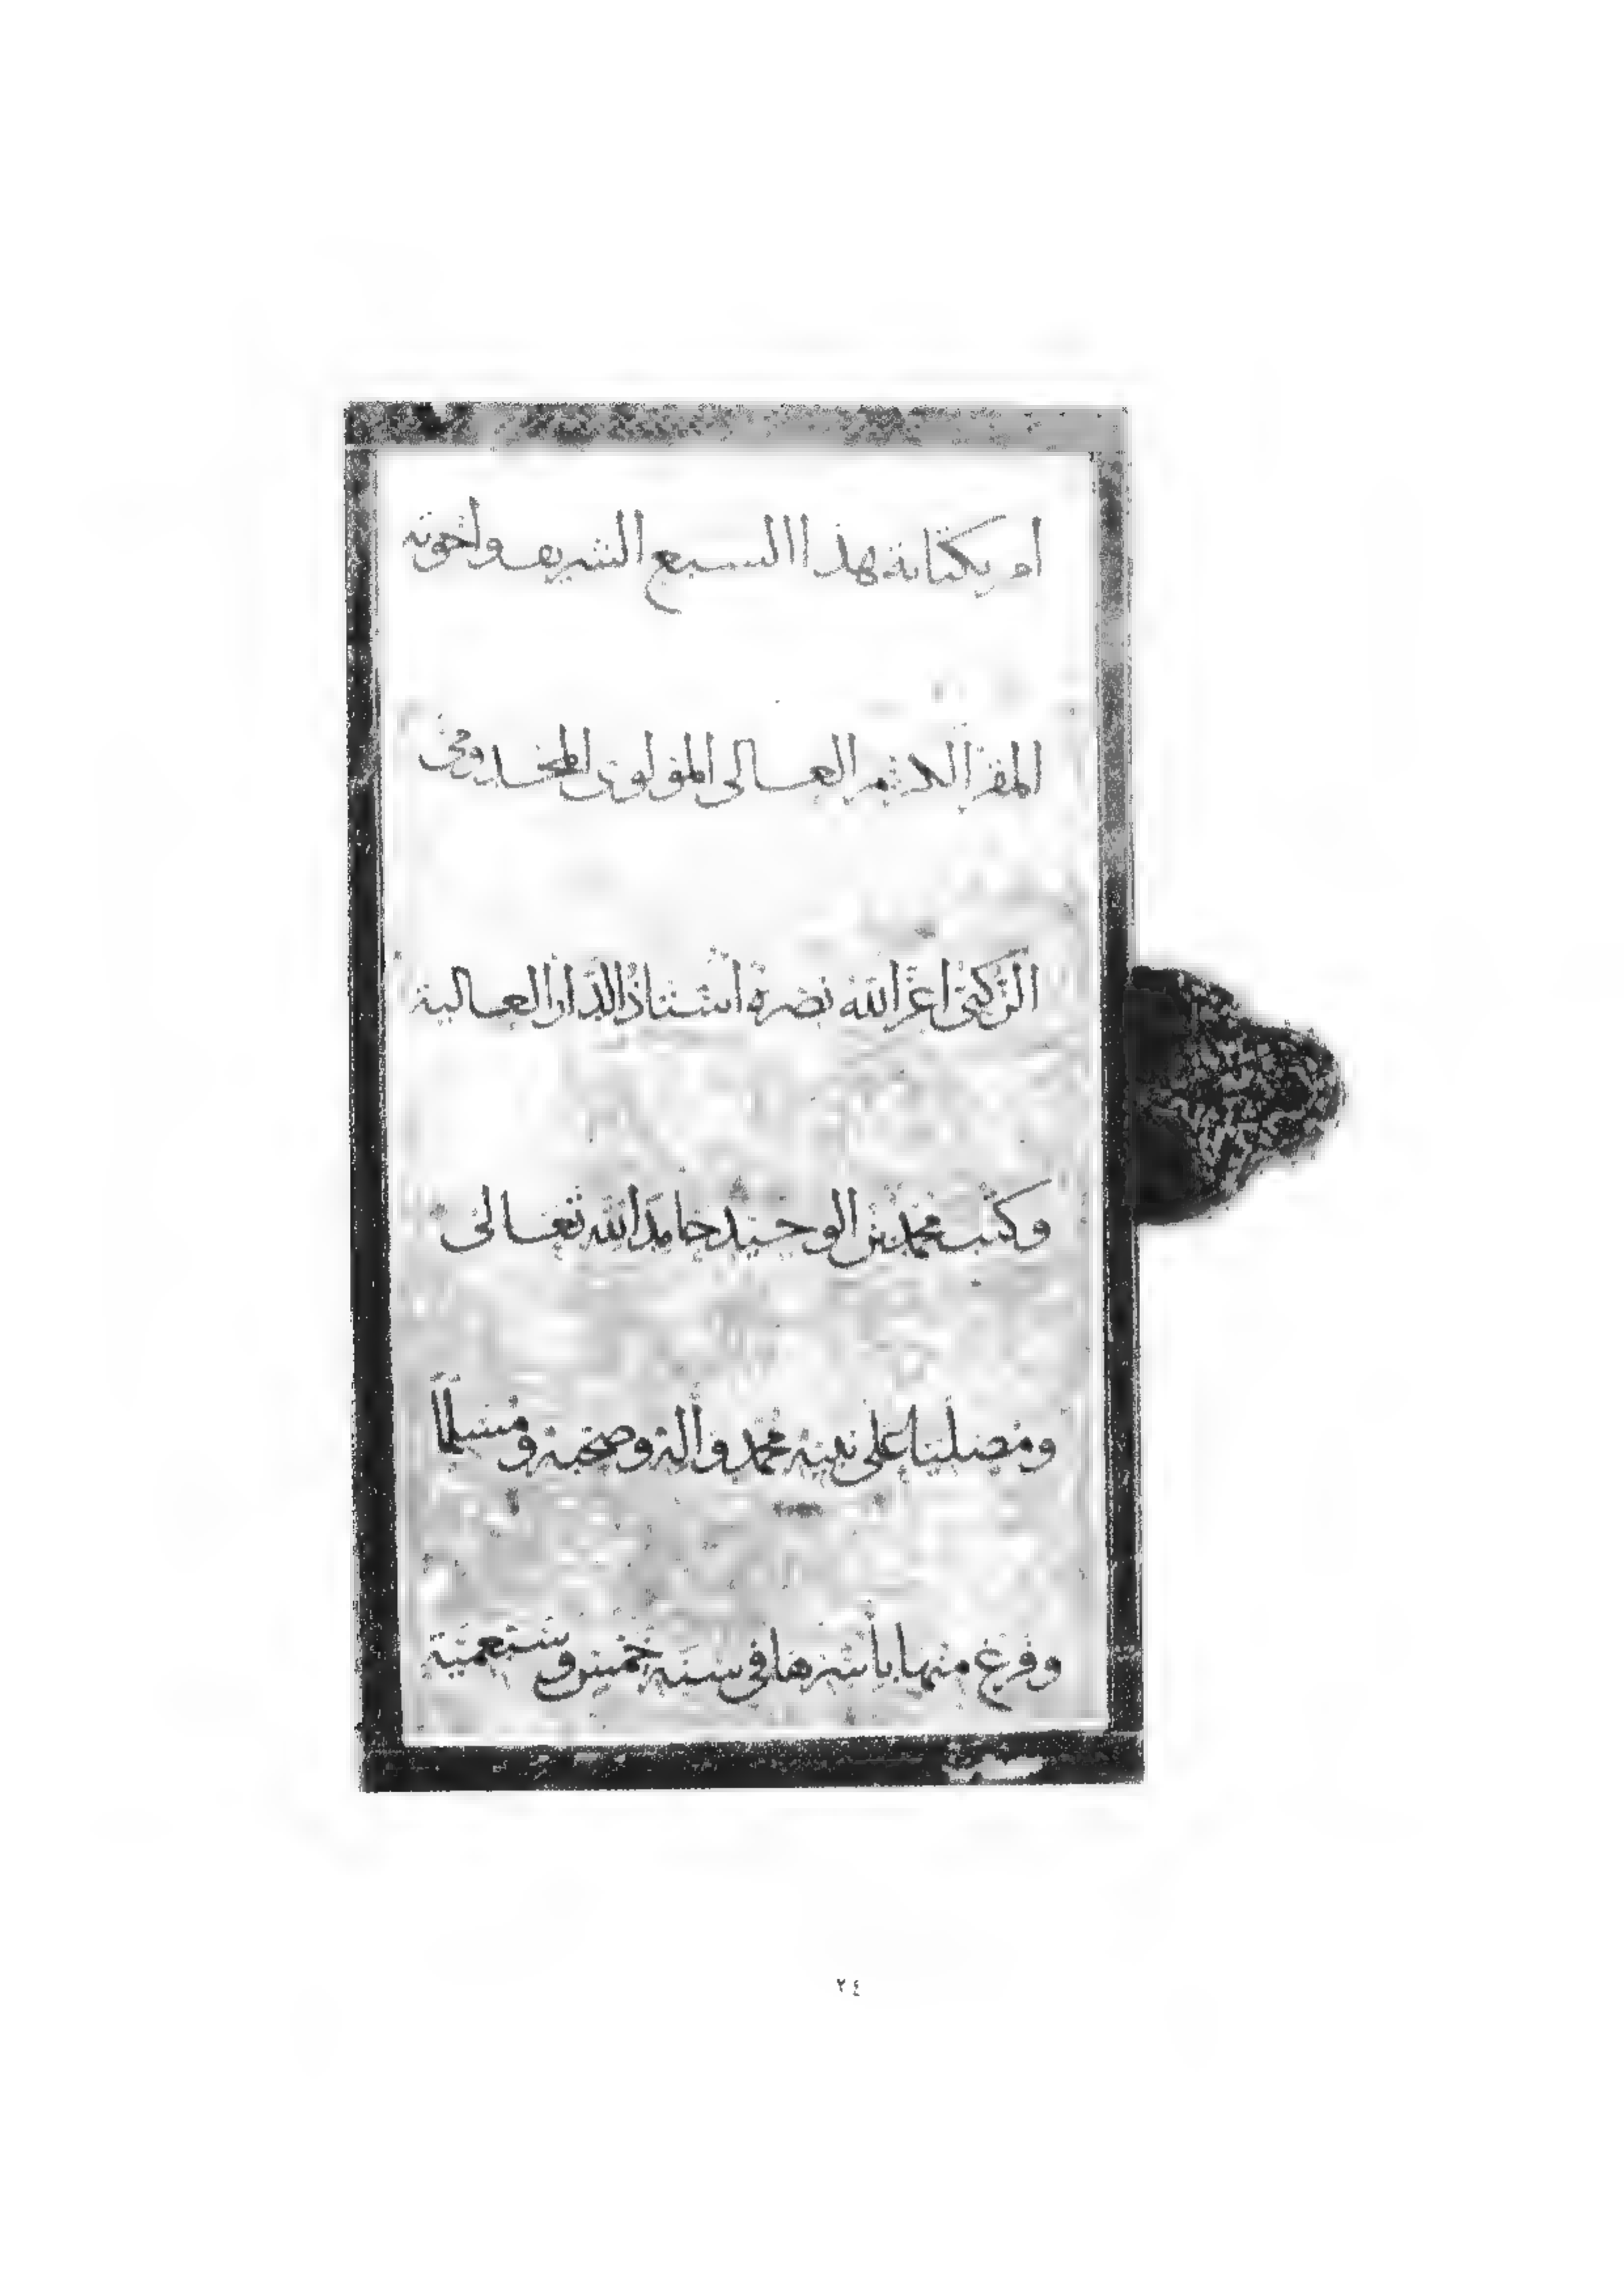 امر بكتابة هذا السبع الشريف واخوته
المقر الاشرف العالى المولوى المخدومى
الركنى اعز الله نصره استاذ الدار العالية
وكتب محمد بن الوحيد حامدا لله تعالى
ومصليا على نبيه محمد وآله وصحبه ومسلما
وفرغ منها بأسرها فى سنة خمس وسبعمية
٢٤